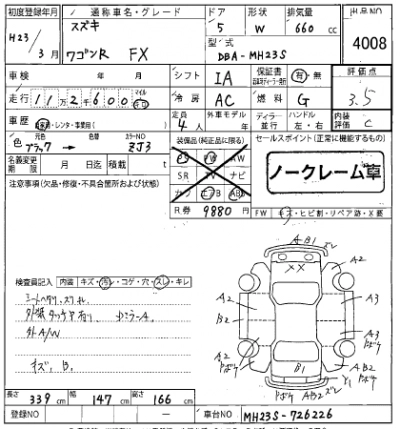 初度登録年月 通称車名・グレード ドア 形状 排気量 出品NO
スズキ 5 W 660 cc
H23/3月 ワゴンR FX 型式 4008
DBA-MH23S
車検 年 月 シフト IA 保証書 有・無 評価点
走行 112600 冷房 AC 燃料 G 3.5
車歴 レンタ・事業用 定員 4人 外車モデル 年 ディーラー 並行 ハンドル 左・右 内装評価 C
色 元色 ブラック → 色替 カラーNO ZJ3 装備品(純正品に限る) セールスポイント(正常に機能するもの)
名義変更期限 月 日迄 積載 t PS PW AW
ノークレーム車
注意事項(欠品・修復・不具合箇所および状態) SR TV ナビ
カワ エアB ABS
R券 9880円 FW キズ・ヒビ割・リペア跡・X要
A B1 ズレ
XX
A2
A2
検査員記入 内装 キズ・汚レ・コゲ・穴・スレ・キレ
シートヘタリ、スレ
A2 A3
B2
外装タッチアリ、ドミラーA
A3
外A/W
A2 ポケ
A2 ポケ
キズ、B
B1
A B2 ポケ
Y1
ポケ AB2 ズレ
長さ 339 cm 幅 147 cm 高さ 166 cm
登録NO ー 車台NO MH23S-726226